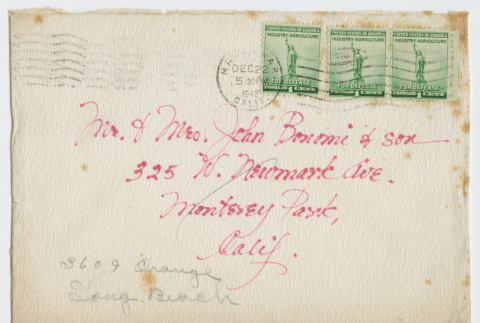 DEC 22
5 30 PM
CALIF.
UNITED STATES OF AMERICA
INDUSTRY AGRICULTURE
FOR DEFENSE
POSTAGE 1 CENT
UNITED STATES OF AMERICA
INDUSTRY AGRICULTURE
FOR DEFENSE
POSTAGE 1 CENT
UNITED STATES OF AMERICA
INDUSTRY AGRICULTURE
FOR DEFENSE
POSTAGE 1 CENT
Mr. & Mrs. John Bonomi & son
325 W. Newmark Ave.
Monterey Park,
Calif.
3609 Orange
Long Beach